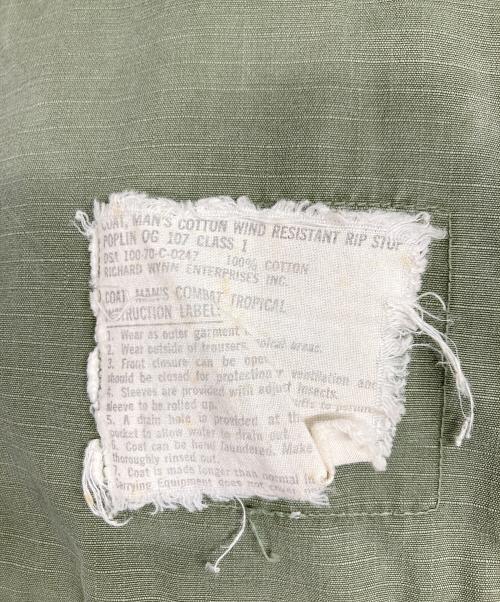 COAT, MAN'S COTTON WIND RESISTANT RIP STOP
POPLIN OG 107 CLASS 1
DSA 100-70-C-0247 100% COTTON
RICHARD WYNN ENTERPRISES INC.
COAT MAN'S COMBAT TROPICAL
INSTRUCTION LABEL:
1. Wear as outer garment
2. Wear outside of trousers, areas.
3. Front closure can be
should be closed for protection ventilation and
4. Sleeves are provided with adjust insects.
sleeve to be rolled up.
5. A drain hole is provided at
pocket to allow water to drain out.
6. Coat can be hand laundered. Make
thoroughly rinsed out.
7. Coat is made longer than normal
Carrying Equipment does not